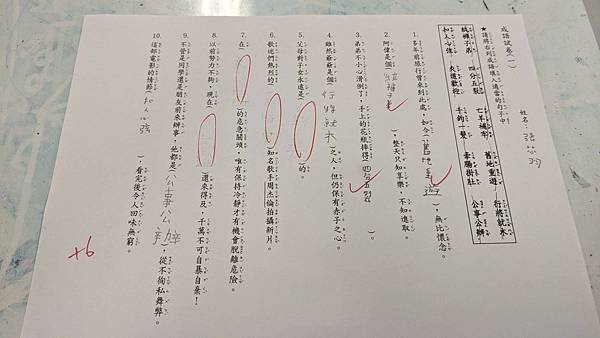 成語試卷(一)
姓名:張芯
★請將右列成語填入適當的句子中
紈褲子弟 四分五裂 亡羊補牢 舊地重遊 行將就木
扣人心弦 夾道歡迎 千鈞一髮 牽腸掛肚 公事公辦
1. 多年前旅行曾來到此處,如今(舊地重遊),無比懷念。
2. 阿偉是個(紈褲子弟),整天只知享樂,不知進取。
3. 弟弟不小心滑倒了,手上的花瓶摔得(四分五裂)。
4. 雖然爺爺是個(行將就木)之人,但仍保有赤子之心。
5. 父母對子女永遠是( )的。
6. 歌迷們熱烈的( )知名歌手周杰倫拍攝新片。
7. 在( )的危急關頭,唯有保持冷靜才有機會脫離危險。
8. 以前努力不夠,現在( )還來得及,千萬不可自暴自棄!
9. 不管是同學還是朋友前來辦事,他都是(公事公辦),從不徇私舞弊。
10. 這部電影的情節(扣人心弦),看完後令人回味無窮。
+6